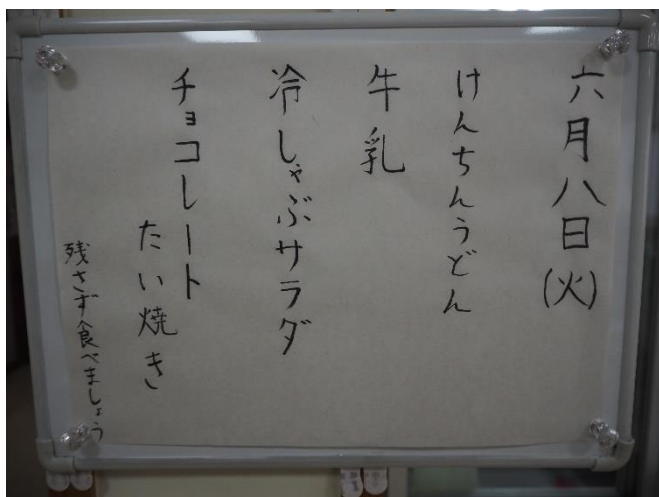 六月八日(火)
けんちんうどん
牛乳
冷しゃぶサラダ
チョコレート
たい焼き
残さず食べましょう